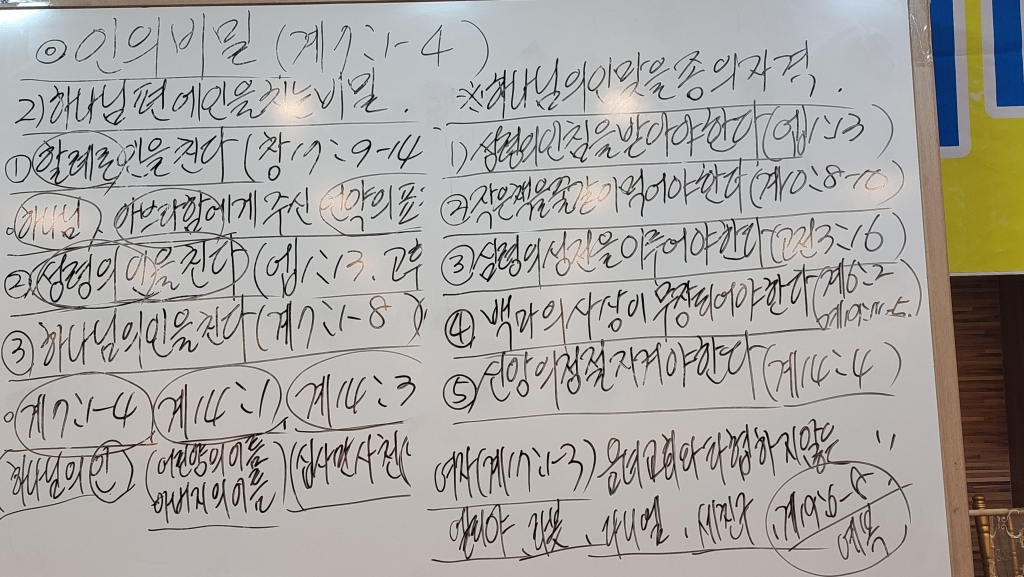 ◎인의비밀 (계7:1-4)
2)하나님편에인을치는비밀.
①할례로인을친다 (창17:9-14
。하나님, 아브라함에게 주신 언약의표
②성령의 인을친다 (엡1:13. 고후
③하나님의인을친다 (계7:1-8)
。계7:1-4 계14:1, 계14:3
하나님의 인 (어린양의이름 아버지의이름) (십사만사천
※하나님의인맞을종의자격.
1) 성령의인침을받아야한다 (엡1:13
②작은책을꿀같이먹어야한다 (계10:8-10)
③성령의성전을이루어야한다 (고전3:16)
④ 백마의사상이 무장되어야한다 (계6:2
계19:11-15.)
⑤신앙의정절지켜야한다 (계14:4)
여자 (계17:1-3) 음녀교회와타협하지않는 〃
엘리야. 나봇. 다니엘. 세친구 계19:6-8
예복